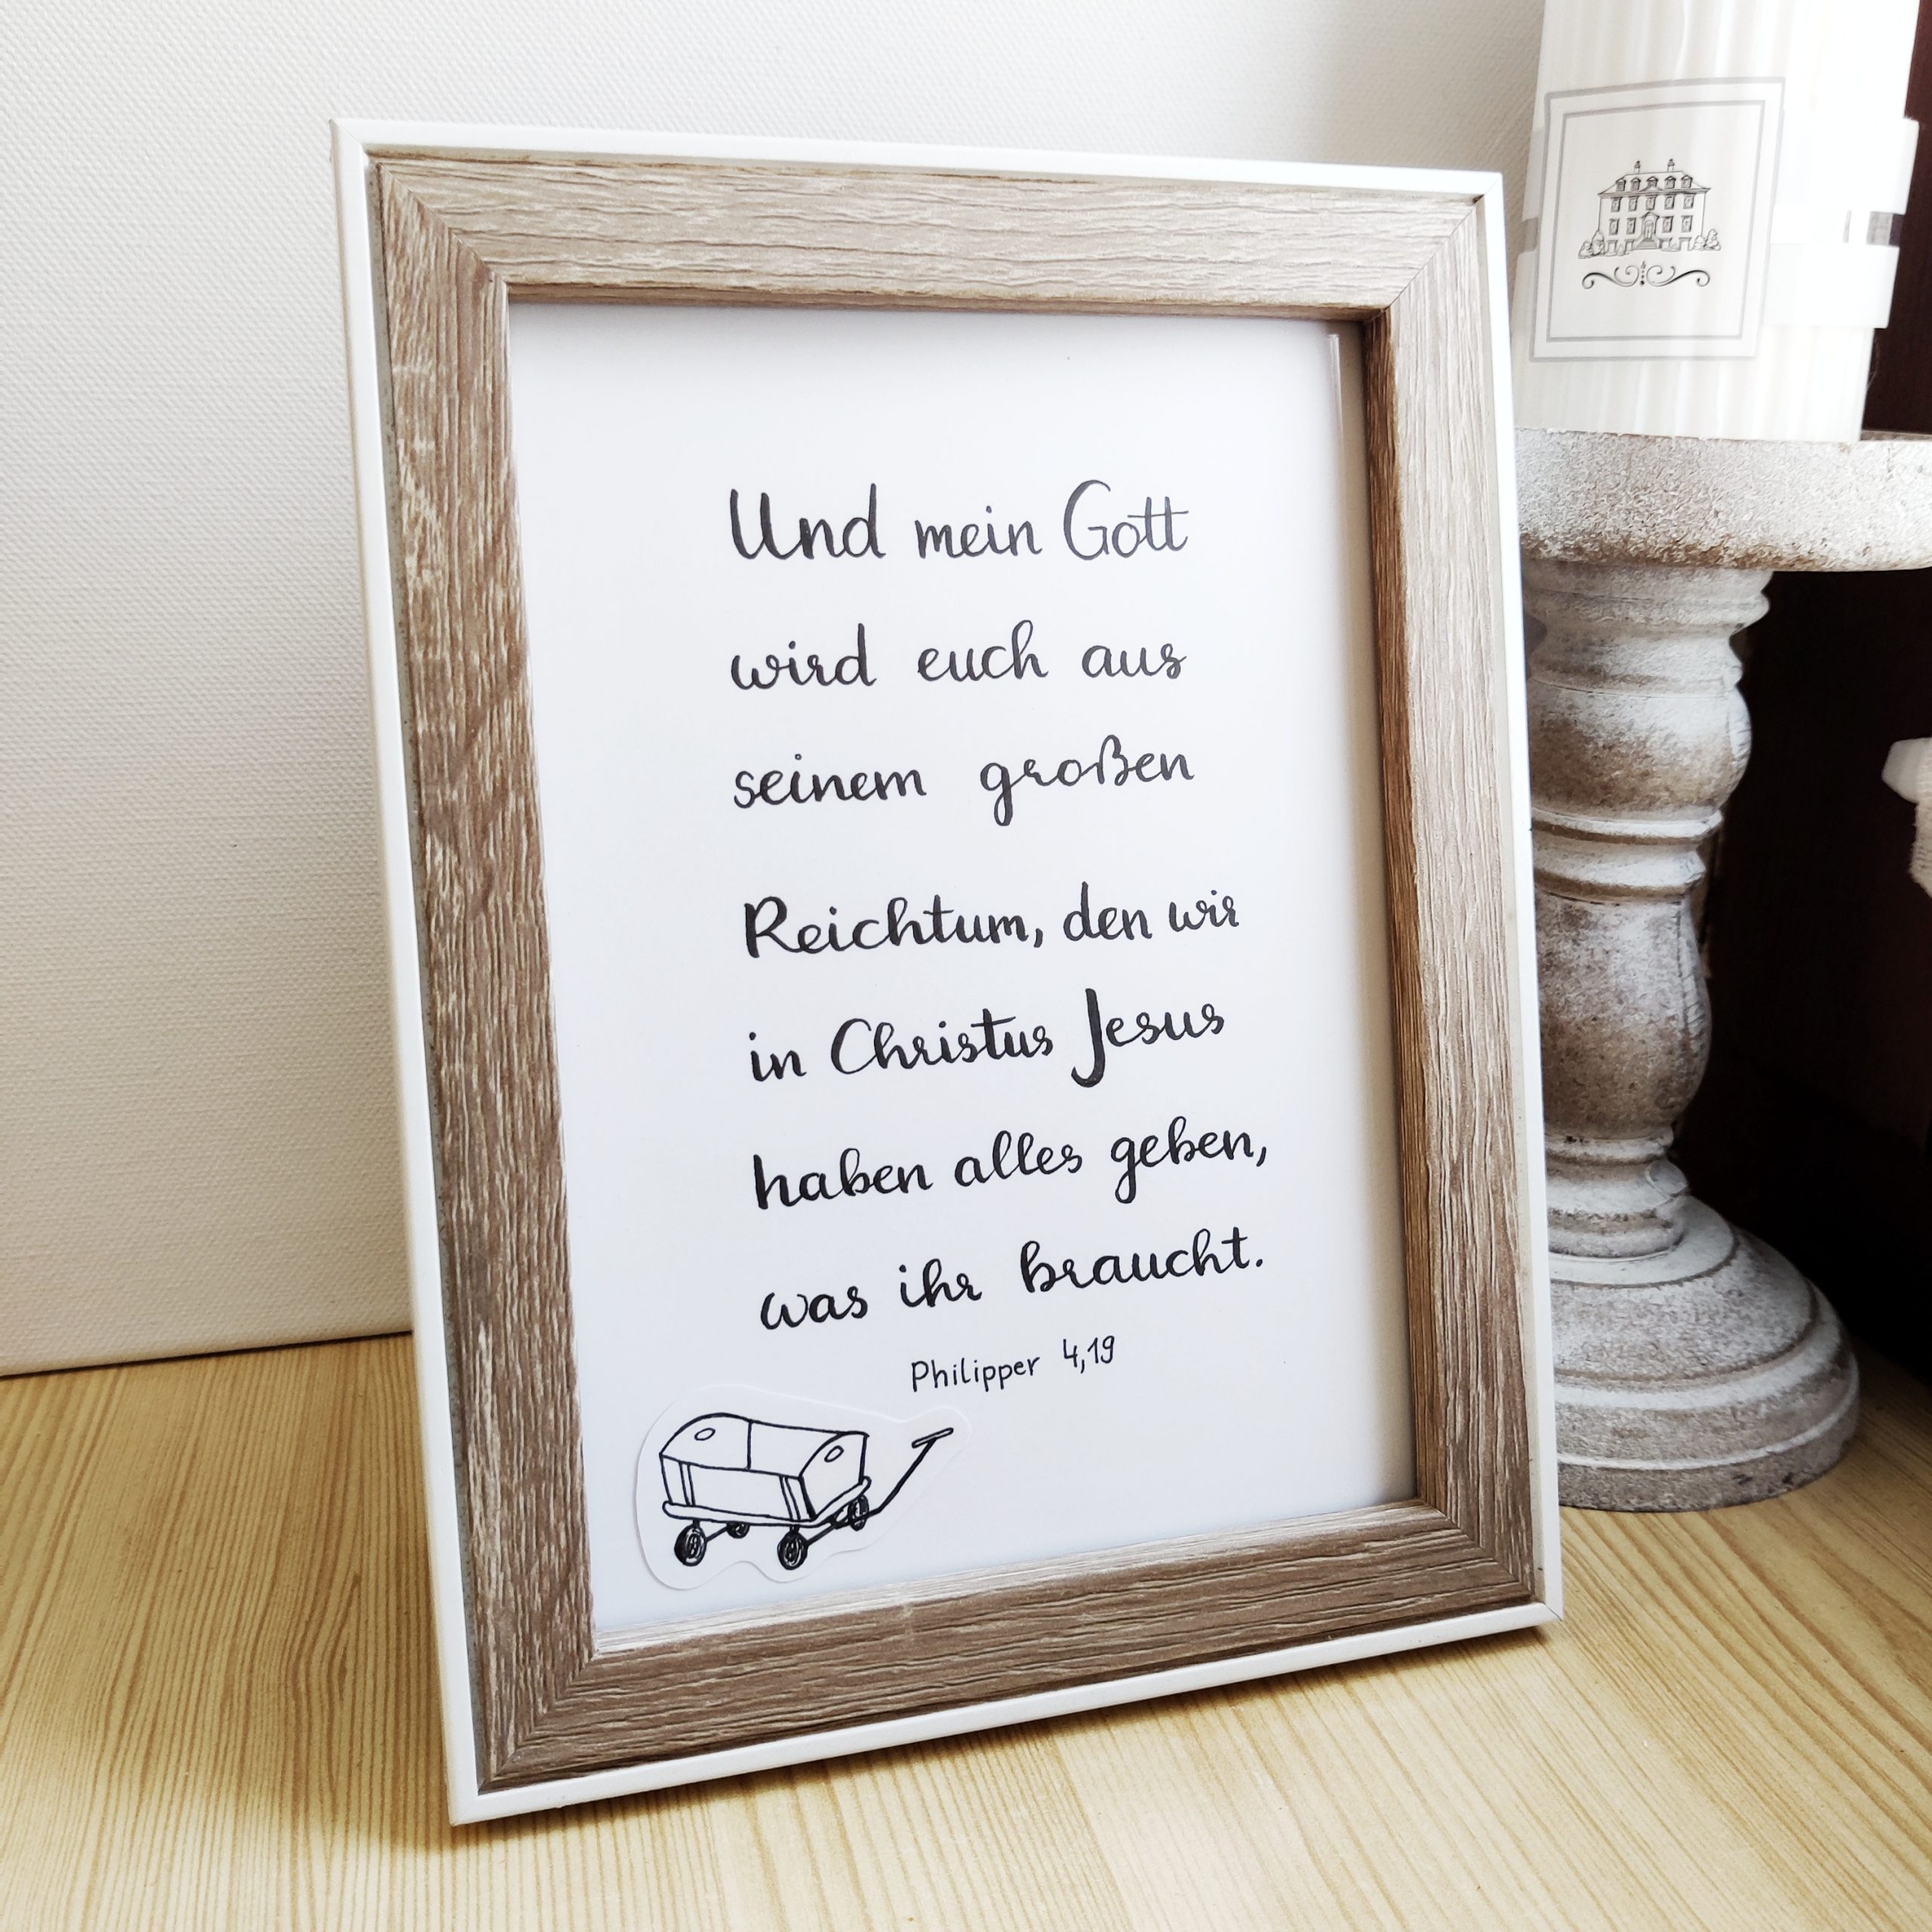 Und mein Gott
wird euch aus
seinem großen
Reichtum, den wir
in Christus Jesus
haben alles geben,
was ihr braucht.
Philipper 4,19